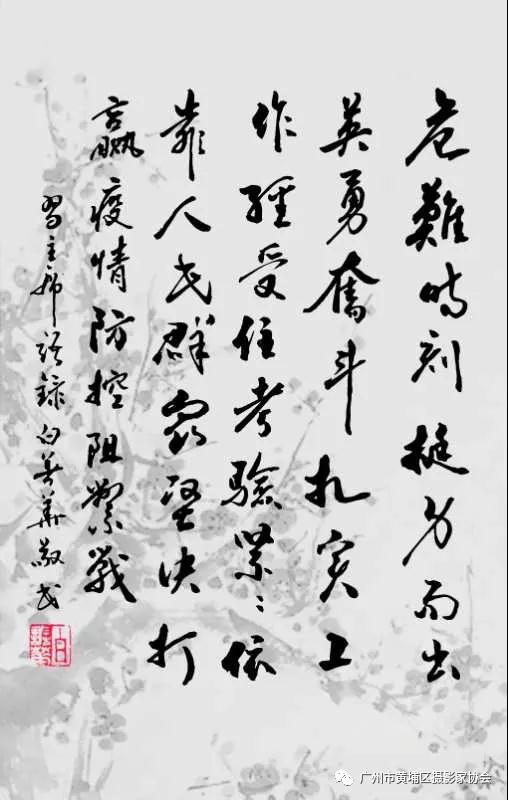 危難時刻挺身而出
英勇奮斗扎实工
作經受住考驗緊〻依
靠人民群眾堅決打
赢疫情防控阻擊戰
習主席語録 白華敬书
广州市黄埔区摄影家协会